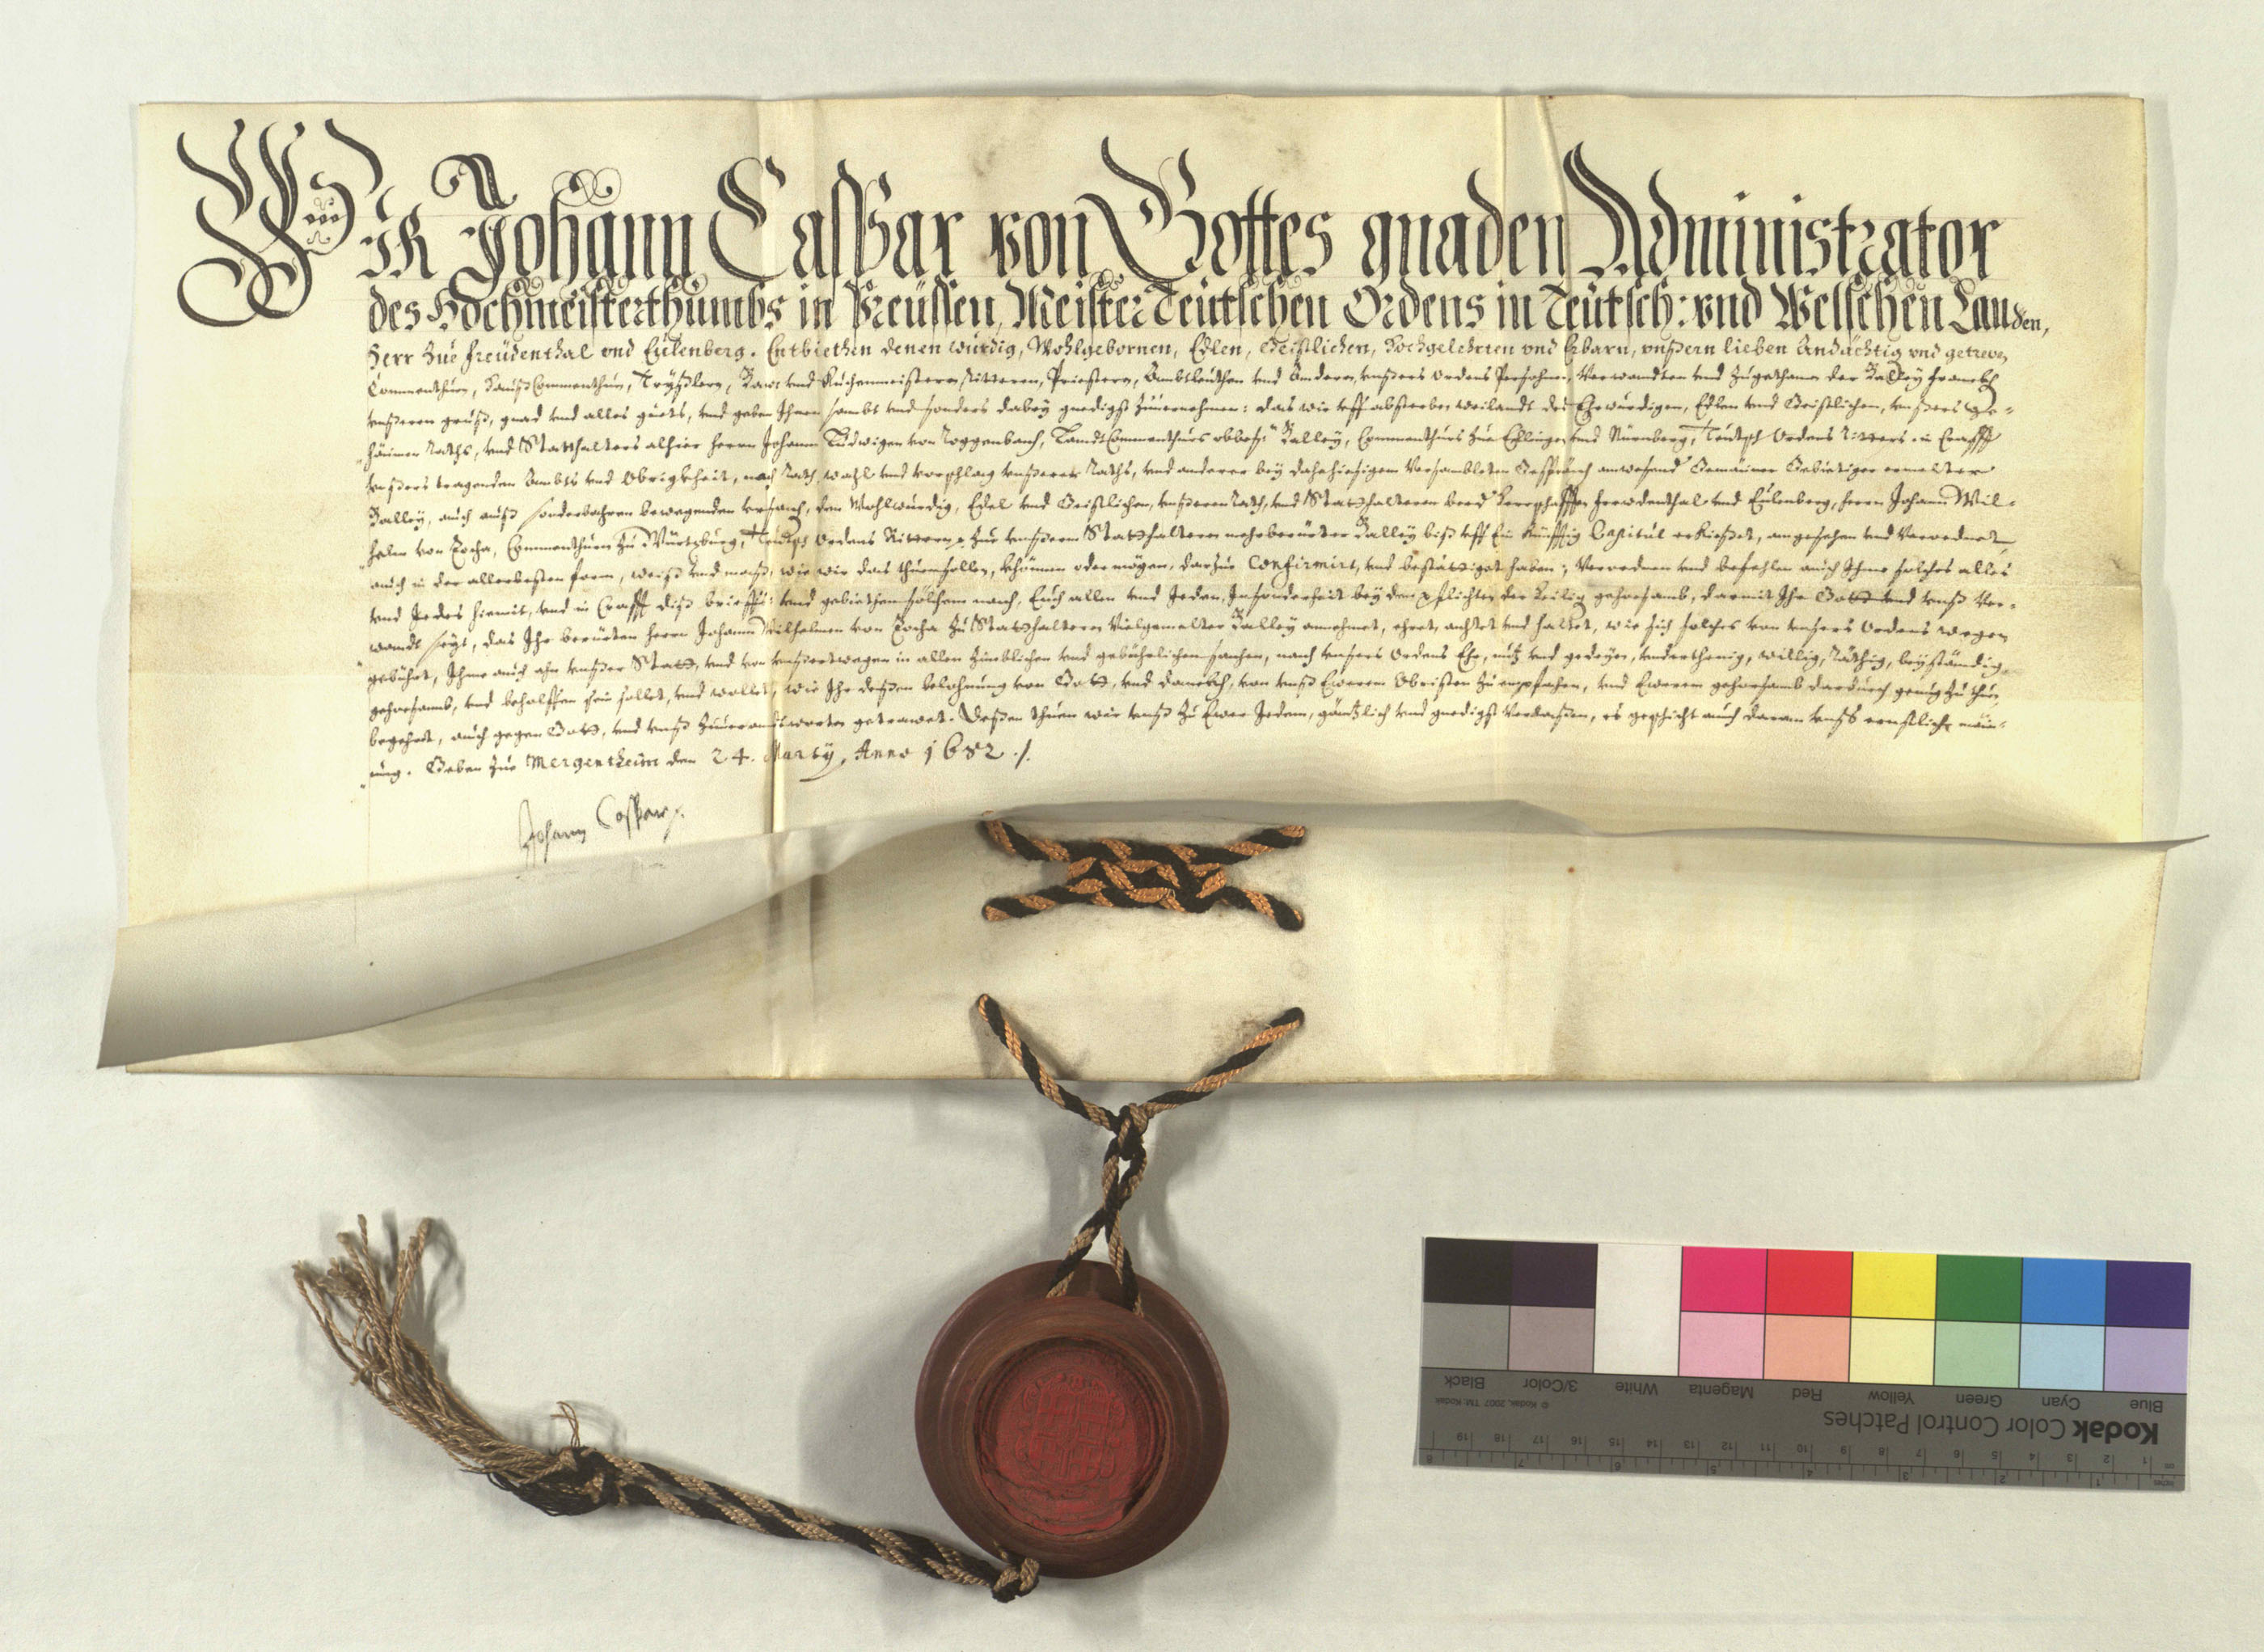 Wir Johann Casspar von Gottes gnaden Administrator
des Hochmeisterthumbs in Preüssen, Meister Teütschen Ordens in Teütsch: vnd Welschen Landen,
Herr zue Freüdenthal vnd Eülenberg. Entbiethen denen würdig, Wohlgebornen, Edlen, Geistlichen, Hochgelehrten vnd Erbarn, vnßern lieben Andächtig vnd getrewen
Commenthurn, HaußCommenthurn, Tryßlern, Baw: vnd Kuchenmeistern, Rittern, Priestern, Ambtleuthen vnd Andern, vnßers Ordens Persohnen, Verwandten vnd Zugethanen der Balley Franckh
vnßeren gruß, gnad vnd alles guets, vnd geben Ihnen sambt vnd sonders dabey gnedigst zuuernehmen: das wir vff absterben weilandt des Ehrwürdigen, Edlen vnd Geistlichen, vnßers Ge-
haimen Raths, vnd Statthalters alhier Herrn Johann Ludwigen von Roggenbach, LandtCommenthurs obbesr. Balley, Commenthurs zue Ellingen vnd Nürnberg, Teutsch Ordens Ritters in Crafft
vnßers tragenden Ambts vnd Obrigkheit, nach Rath, wahl vnd vorschlag vnßerer Raths, vnd anderer bey dahehiesigem Versambleten Gespräch anwesend Gemainer Gebietiger ermelter
Balley, auch auß sonderbahren bewegenden vrsach, den Wohlwürdig, Edel vnd Geistlichen, vnßeren Rath, vnd Statthalteren beed Herrschafften Frewdenthal vnd Eülenberg, Herrn Johann Wil-
helm von Zocha, Commenthurn zu Würtzburg, Teutsch Ordens Rittern, zue vnßerem Statthaltern mehrberürter Balley biß vff Ein Künfftig Capitul erkießet, angesehen vnd Verordnet,
auch in der allerbesten form, weiß vnd maß, wie wir das thuen sollen, khönnen oder mögen, darzue Confirmirt, vnd bestättiget haben; Verordnen vnd befehlen auch Ihme solches alles
vnd Jedes hiemit, vnd in Crafft diß brieffs: vnd gebiethen solchem nach, Euch allen vnd Jeden, Insonderheit bey den pflichten der heilig gehorsamb, darmit Ihr Gott vnd vnß Ver-
wandt seyt, das Ihr berürten Herrn Johann Wilhelmen von Zocha zu Statthaltern Vielgemelter Balley annehmet, ehret, achtet vnd haltet, wie sich solches von vnsers Ordens wegen
gebühret, Ihme auch ahn vnßer Statt, vnd von vnßertwegen in allen zimblichen vnd gebührlichen sachen, nach vnsers Ordens Ehr, nutz vnd gedeyen, vnderthenig, willig, Räthig, beyständig,
gehorsamb, vnd beholffen sein sollet, vnd wollet, wie Ihr deßen belohnung von Gott, vnd danckh, von vnß Ewerem Obristen zu empfahen, vnd Ewerem gehorsamb dardurch genug zu thun
begehrt, auch gegen Gott, vnd vnß zuuerandtworten getrawet. Deßen thuen wir vnß zu Ewer Jedem, gäntzlich vnd gnedigst Verlaßen, es geschicht auch daran vnßs ernstliche main-
ung. Geben zue Mergentheim den 24. Marty, Anno 1682 ./.
Johann Caspar
Kodak Color Control Patches
Blue Cyan Green Yellow Red Magenta White 3/Color Black
© Kodak, 2007 TM: Kodak
1 2 3 4 5 6 7 8 9 10 11 12 13 14 15 16 17 18 19
1 2 3 4 5 6 7 8